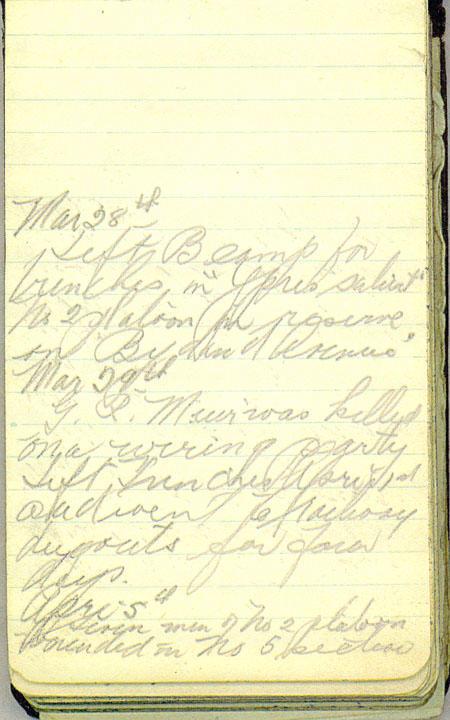 Mar 28th
Left B camp for
trenches in "Ypres salient"
No 2 platoon in reserve
on "Bydand Avenue"
Mar 29th
G. Muir was killed
on a wiring party
Left trenches April 1st
and went to railway
dugouts for four
days.
April 5th
Seven men of No 2 platoon
wounded in No 5 section